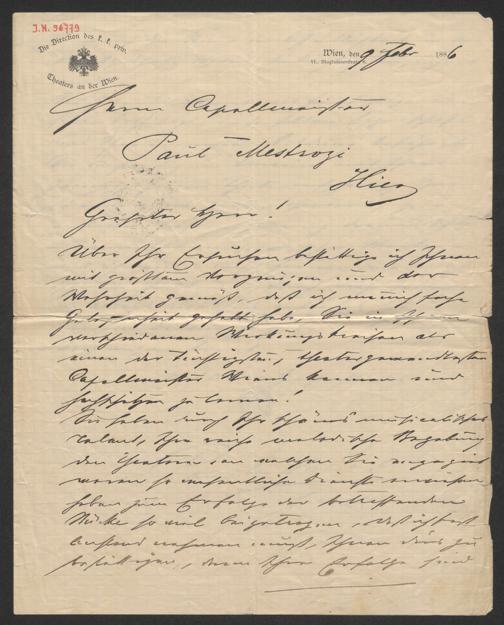 J.N. 96779
Die Direction des k. k. priv.
Theaters an der Wien.
Wien, den 9 Febr 1886
VI. Magdalenenstrasse 8.
Herrn Capellmeister
Paul Mestrozi
Hier
Geehrter Herr!
Über Ihr Ersuchen bestättige ich Ihnen
mit größtem Vergnügen und der
Wahrheit gemäß, daß ich mannichfache
Gelegenheit gehabt habe, Sie in Ihren
verschiedenen Wirkungskreisen als
einen der tüchtigsten, theatergewandtesten
Capellmeister Wiens kennen und
hochschätzen zu lernen!
Sie haben durch Ihr schönes musicalisches
Talent, Ihre reiche melodische Begabung
den Theatern an welchen Sie engagirt
waren so wesentliche Dienste erwiesen
haben zum Erfolge der betreffenden
Stücke so viel beigetragen, daß ich fast
Anstand nehmen muß, Ihnen dies zu
bestättigen, denn Ihre Erfolge sind